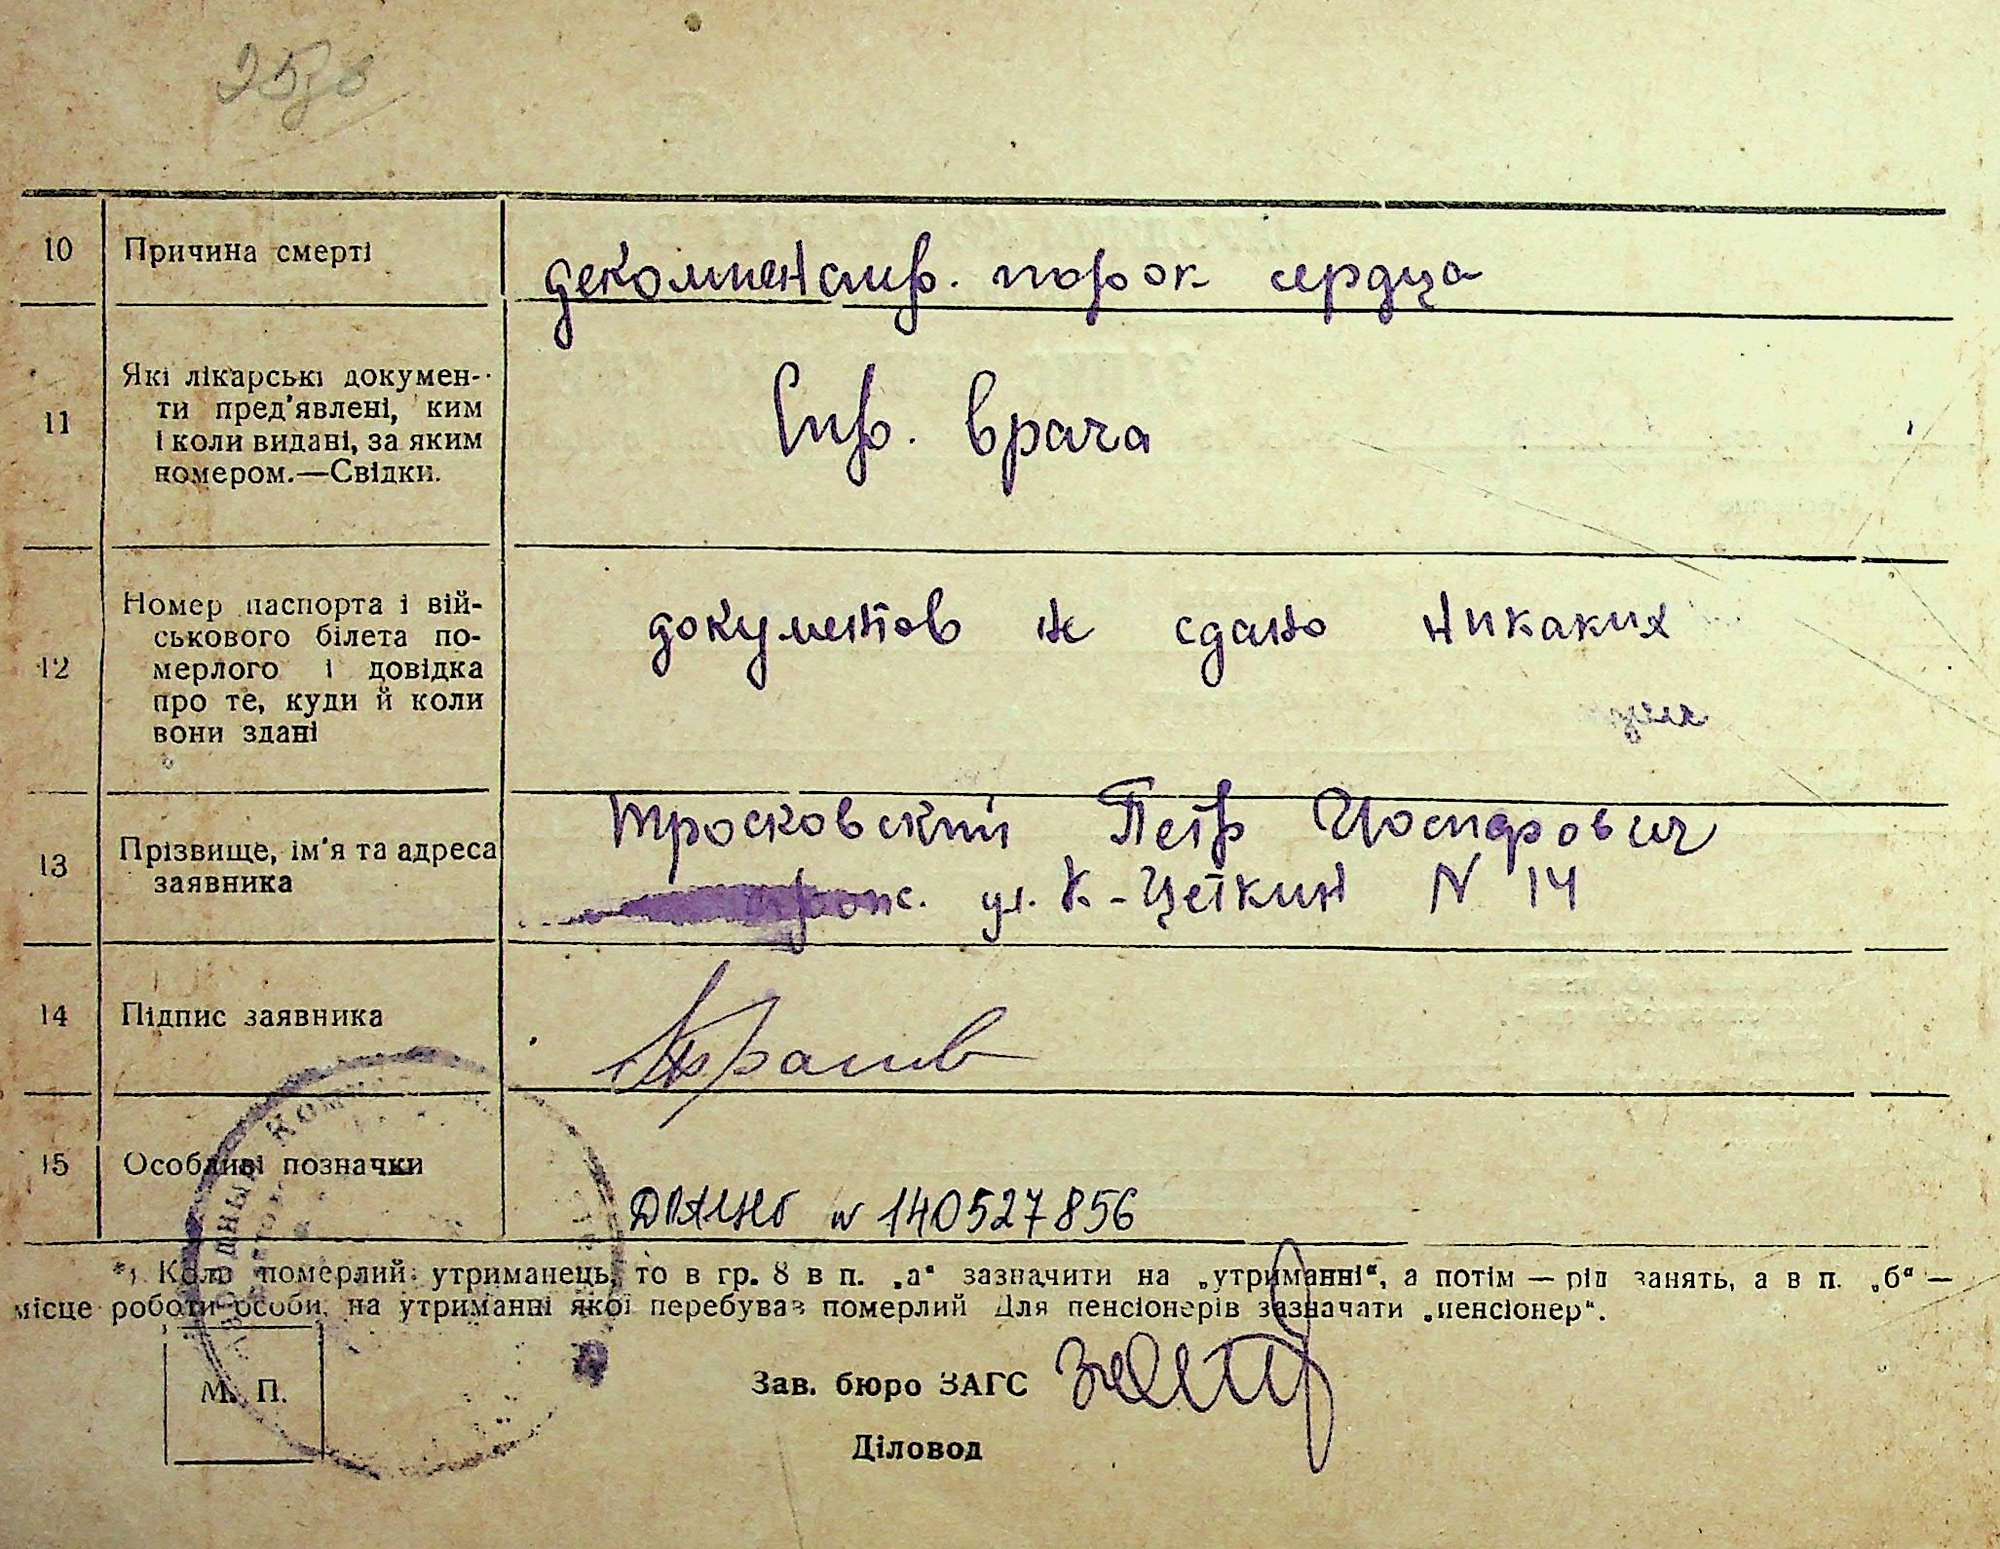 10 Причина смерті декомпенсир. порок сердца
11 Які лікарські докумен-
ти пред'явлені, ким
і коли видані, за яким
номером.—Свідки.
Спр. врача
12 Номер паспорта і вій-
ськового білета по-
мерлого і довідка
про те, куди й коли
вони здані
документов не сдано никаких
13 Прізвище, ім'я та адреса
заявника
Тросковский Петр Иосифович
ул. К-Цеткин N 14
14 Підпис заявника
15 Особливі позначки
N 140527856
*) Коли померлий утриманець, то в гр. 8 в п. „а“ зазначити на „утриманні“, а потім — рід занять, а в п. „б“ —
місце роботи особи, на утриманні якої перебував померлий Для пенсіонерів зазначати „пенсіонер“.
М. П.
Зав. бюро ЗАГС
Діловод